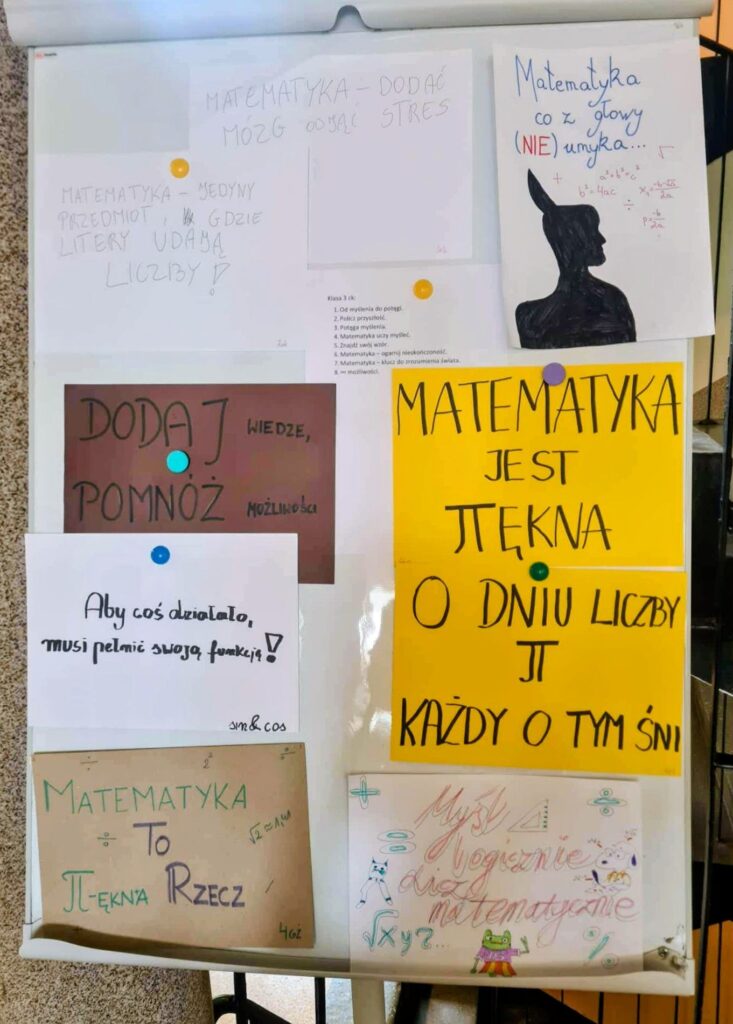 MATEMATYKA – DODAĆ
MÓZG ODJĄĆ STRES
Matematyka
co z głowy
(NIE) umyka...
a²+b²=c²
b²=4ac
÷
MATEMATYKA – JEDYNY
PRZEDMIOT, GDZIE
LITERY UDAJĄ
LICZBY!
Klasa 3 ck:
1. Od myślenia do potęgi.
2. Policz przyszłość.
3. Potęga myślenia.
4. Matematyka uczy myśleć.
5. Znajdź swój wzór.
6. Matematyka – ogarnij nieskończoność.
7. Matematyka – klucz do zrozumienia świata.
8. ∞ możliwości.
DODAJ WIEDZE,
POMNÓŻ MOŻLIWOŚCI
MATEMATYKA
JEST
πĘKNA
O DNIU LICZBY
π
KAŻDY O TYM ŚNI
Aby coś działało,
musi pełnić swoją funkcję!
sin & cos
MATEMATYKA
÷ TO
π-ĘKNA RZECZ
4Gż
Myśl
logicznie
licz
matematycznie
√xyz...